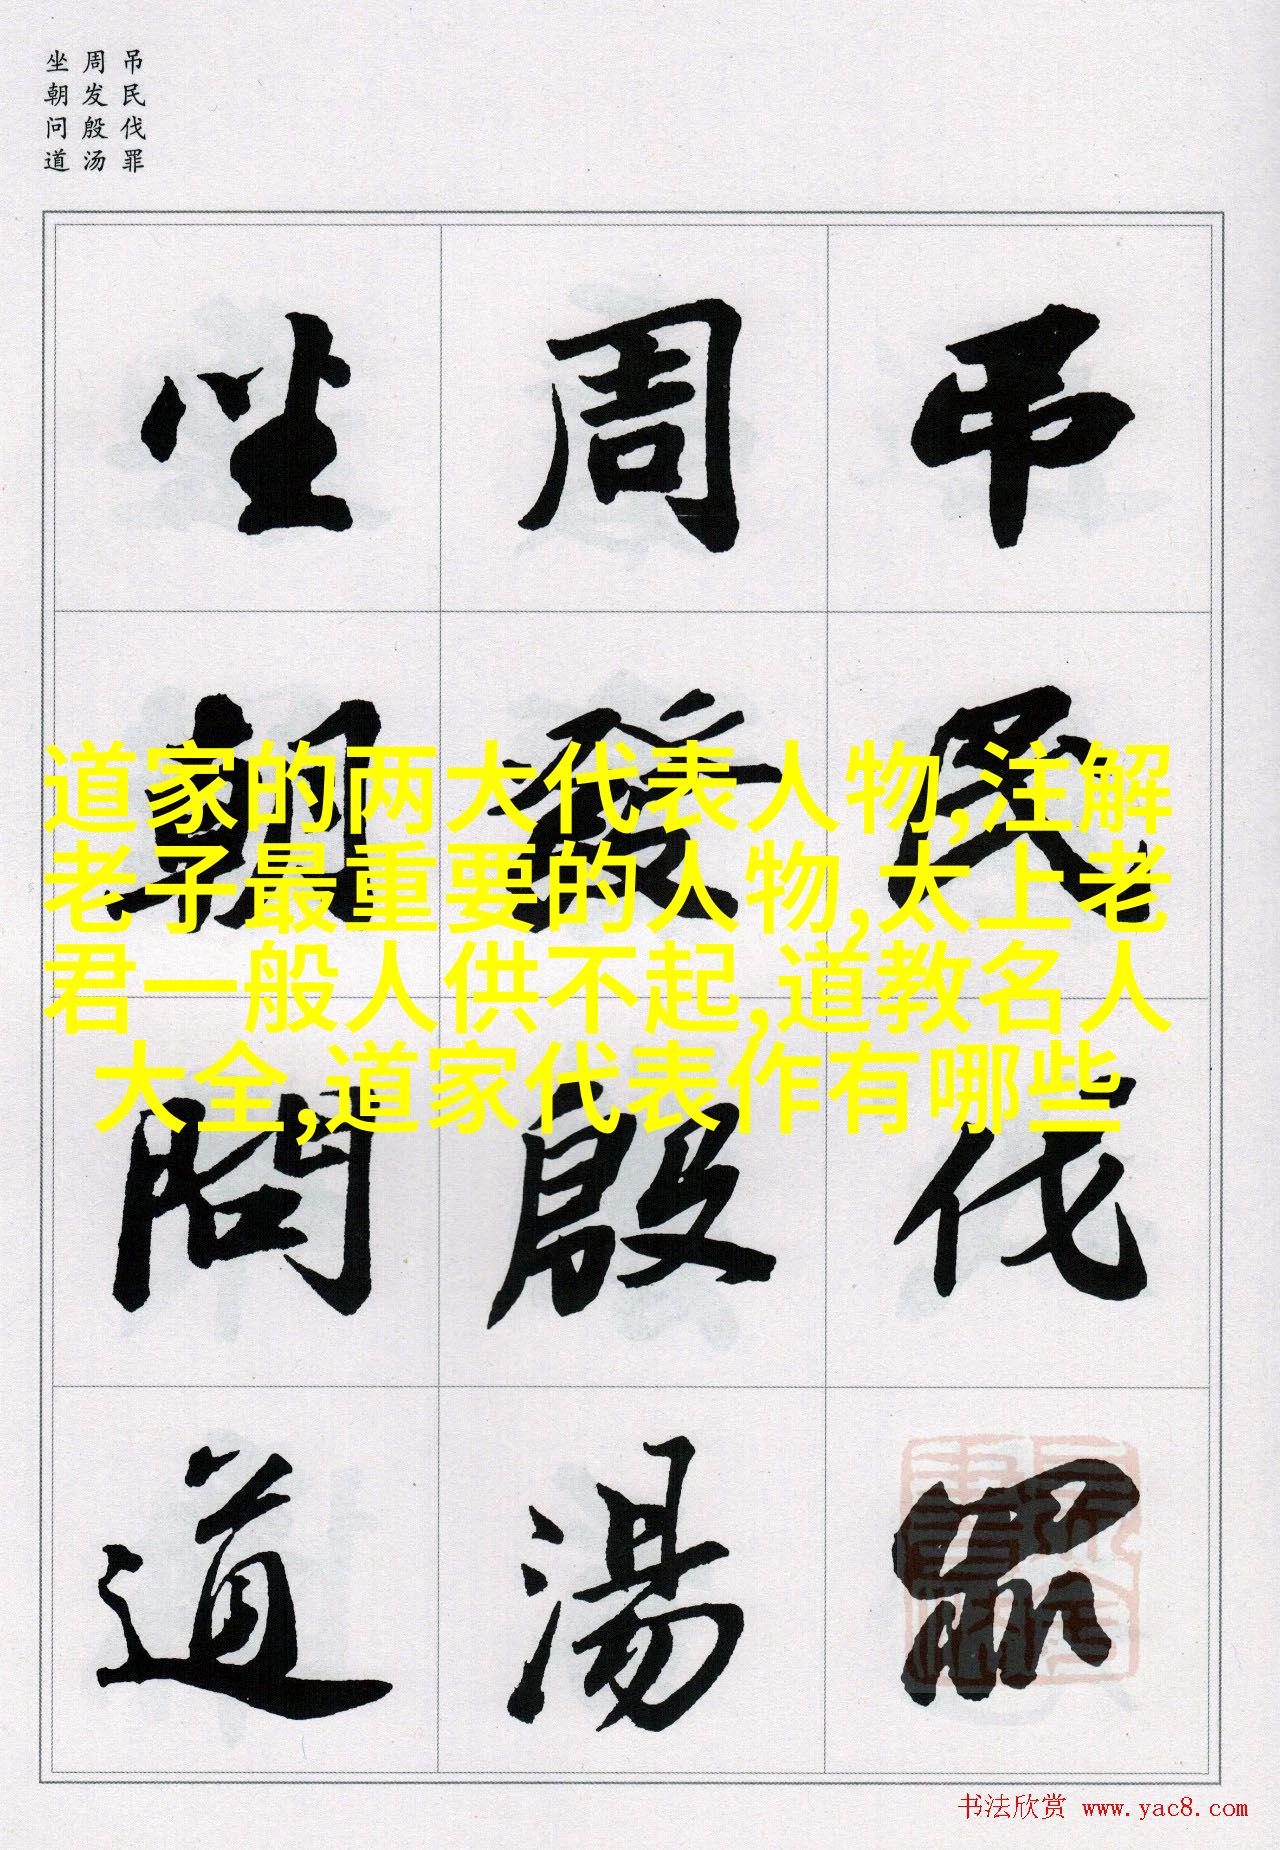 吊民伐罪
周发殷汤
坐朝问道
吊民伐罪
周發殷湯
坐朝問道
道家的两大代表人物,注解
老子最重要的人物,太上老
君一般人供不起,道教名人
大全,道家代表作有哪些
书法欣赏 www.yac8.com